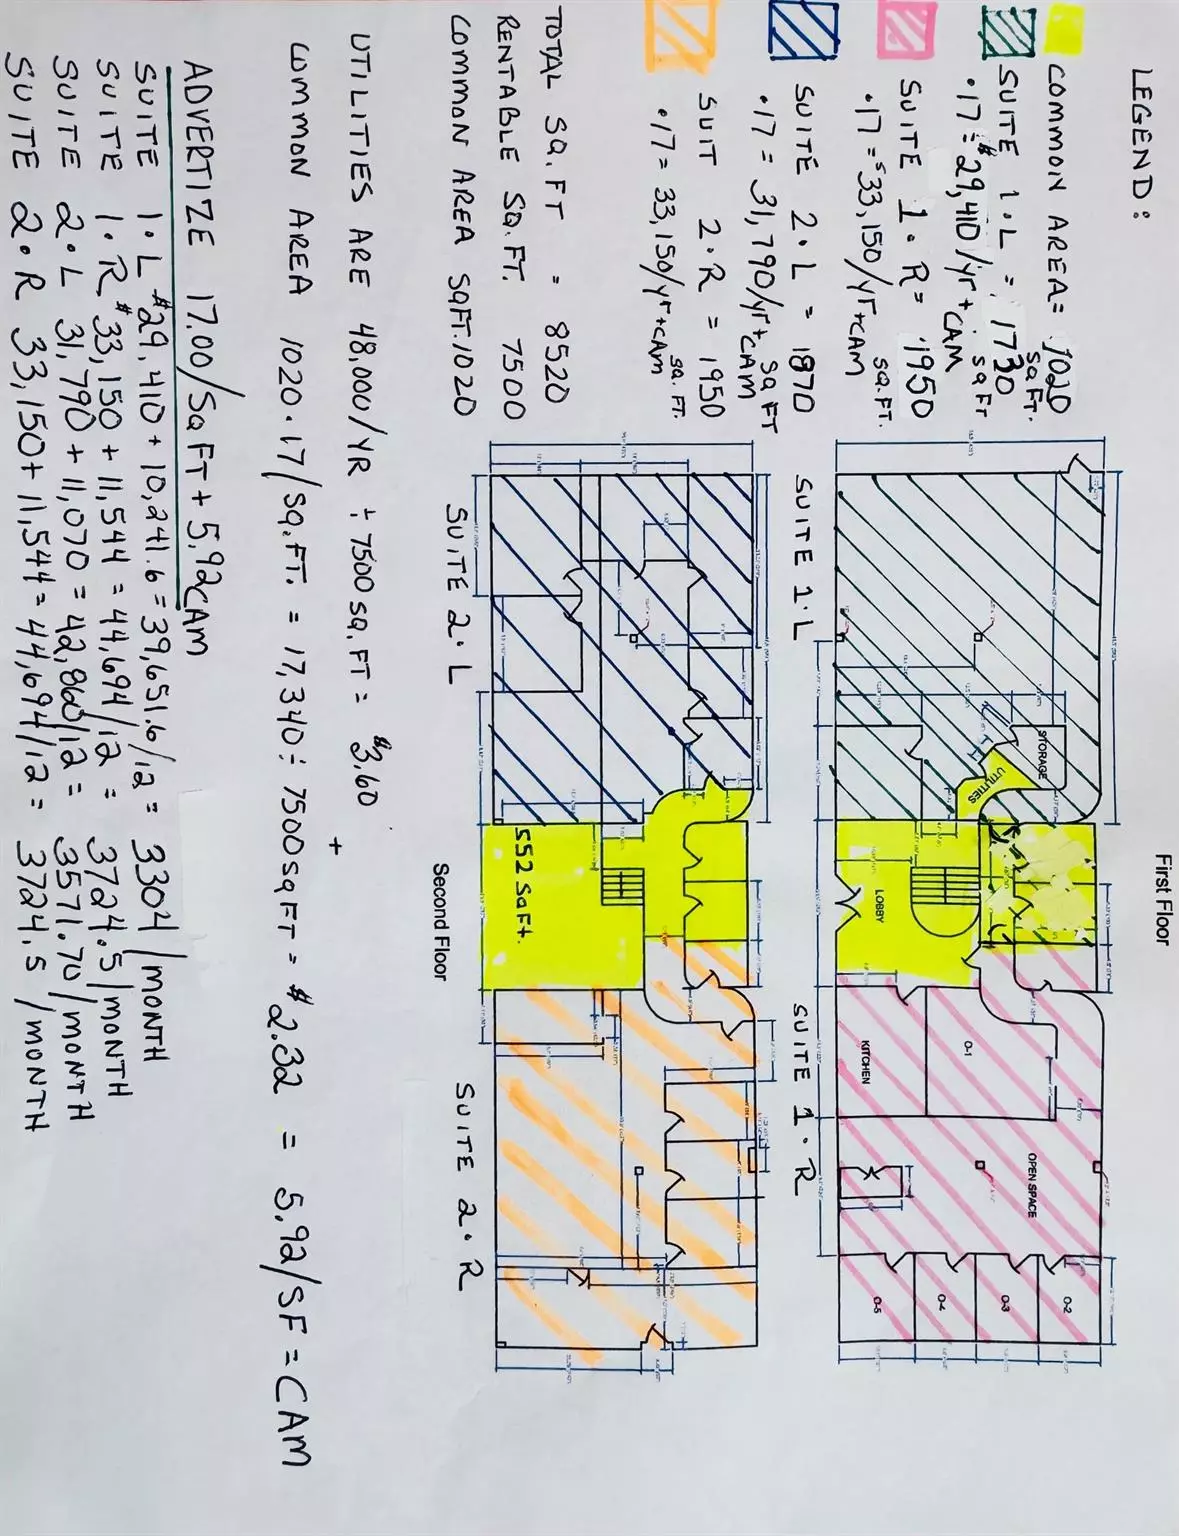 LEGEND:
COMMON AREA= 1020
SQ FT.
SUITE 1.L = 1730
SQ FT
.17 = $29,410/yr + CAM
SUITE 1.R= 1950
SQ.FT.
.17 = $33,150/yr+CAM
SUITE 2.L = 1870
SQ FT
.17 = 31,790/yr+CAM
SUIT 2.R = 1950
SQ. FT.
.17 = 33,150/yr+CAM
TOTAL SQ.FT = 8520
RENTABLE SQ.FT. 7500
COMMON AREA SQFT.1020
First Floor
STORAGE
UTILITIES
LOBBY
O-1
KITCHEN
OPEN SPACE
O-2
O-3
O-4
O-5
SUITE 1.L
SUITE 1.R
552 SQ Ft.
SUITE 2.L
Second Floor
SUITE 2.R
UTILITIES ARE 48,000/YR ÷ 7500 SQ.FT = $3.60
+
COMMON AREA 1020.17/SQ.FT. = 17,340 ÷ 7500 SQ FT = $2.32 = 5.92/SF = CAM
ADVERTIZE 17.00/SQ FT + 5.92 CAM
SUITE 1.L $29,410 + 10,241.6 = 39,651.6/12 = 3304/MONTH
SUITE 1.R $33,150 + 11,544 = 44,694/12 = 3724.5/MONTH
SUITE 2.L 31,790 + 11,070 = 42,860/12 = 3571.70/MONTH
SUITE 2.R 33,150 + 11,544 = 44,694/12 = 3724.5/MONTH